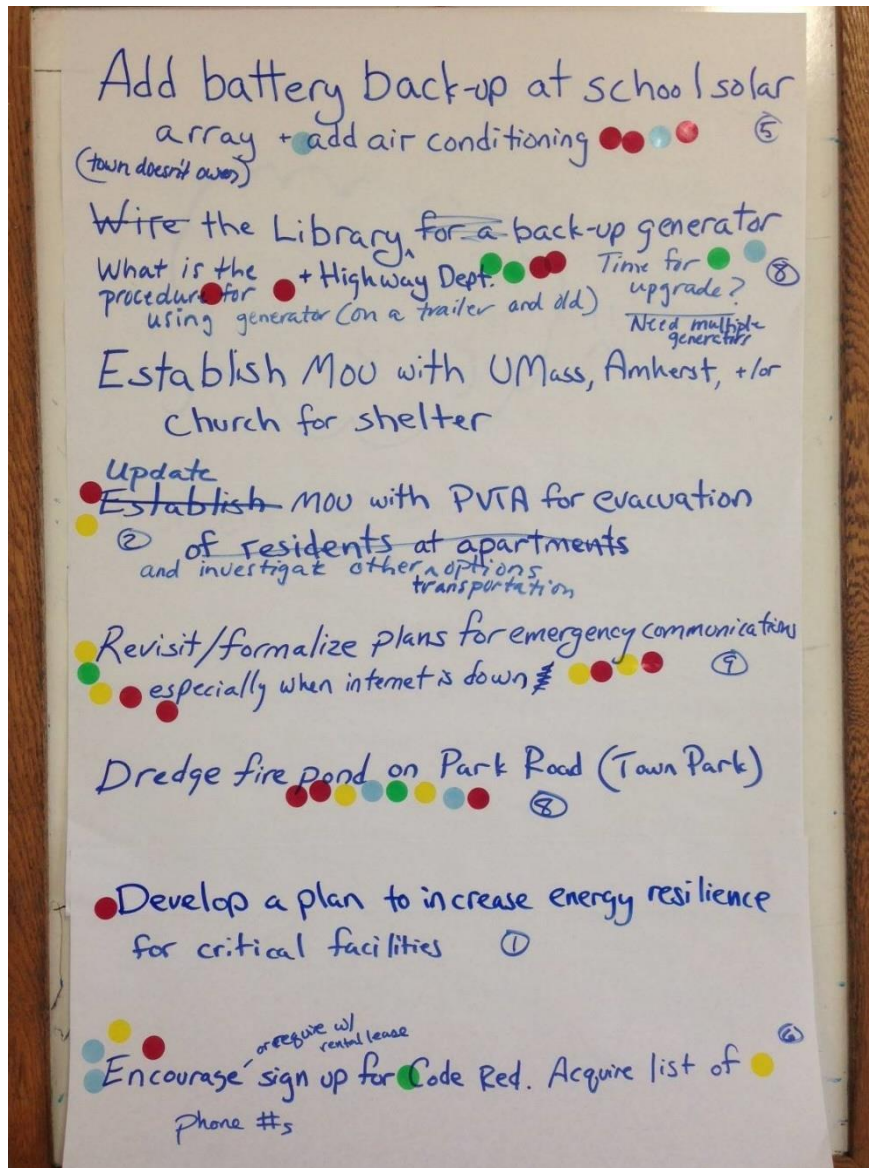 Add battery back-up at school solar
array + add air conditioning ⑤
(town doesn't own)
Wire the Library, for a back-up generator
What is the procedure for using generator (on a trailer and old)
+ Highway Dept.
Time for upgrade? ⑧
Need multiple generators
Establish MOU with UMass, Amherst, +/or
church for shelter
Update
Establish MOU with PVTA for evacuation
② of residents at apartments
and investigate other ^ options
transportation
Revisit/formalize plans for emergency communications
especially when internet is down ⑨
Dredge fire pond on Park Road (Town Park)
⑧
Develop a plan to increase energy resilience
for critical facilities ①
or require w/
rental lease
Encourage sign up for Code Red. Acquire list of ⑥
phone #s